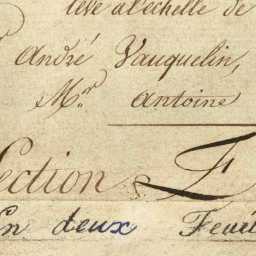 levé à l'échelle de
André Vauquelin,
Mr. Antoine
Section F
En deux Feuil